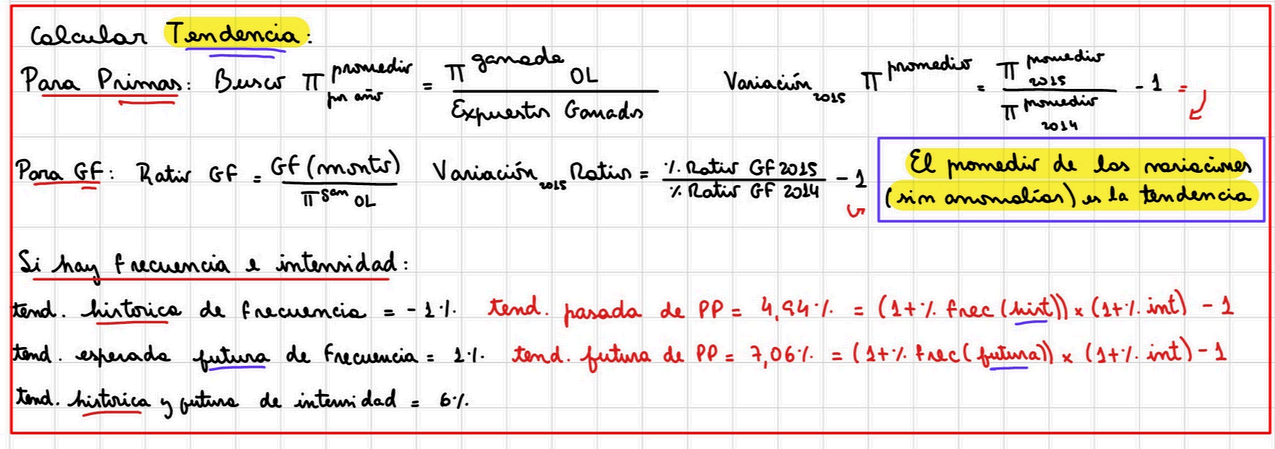 Calcular Tendencia:
Para Primas: Busco π promedio por año = π ganada OL / Expuestos Ganados Variación 2015 π promedio = π promedio 2015 / π promedio 2014 - 1 =
Para GF: Ratio GF = GF (monto) / π gan OL Variación 2015 Ratio = % Ratio GF 2015 / % Ratio GF 2014 - 1
El promedio de las variaciones
(sin anomalías) es la tendencia
Si hay frecuencia e intensidad:
tend. historica de frecuencia = -1% tend. pasada de PP = 4,94% = (1+% frec (hist)) x (1+% int) - 1
tend. esperada futura de Frecuencia = 1% tend. futura de PP = 7,06% = (1+% frec (futura)) x (1+% int) - 1
tend. historica y futura de intensidad = 6%